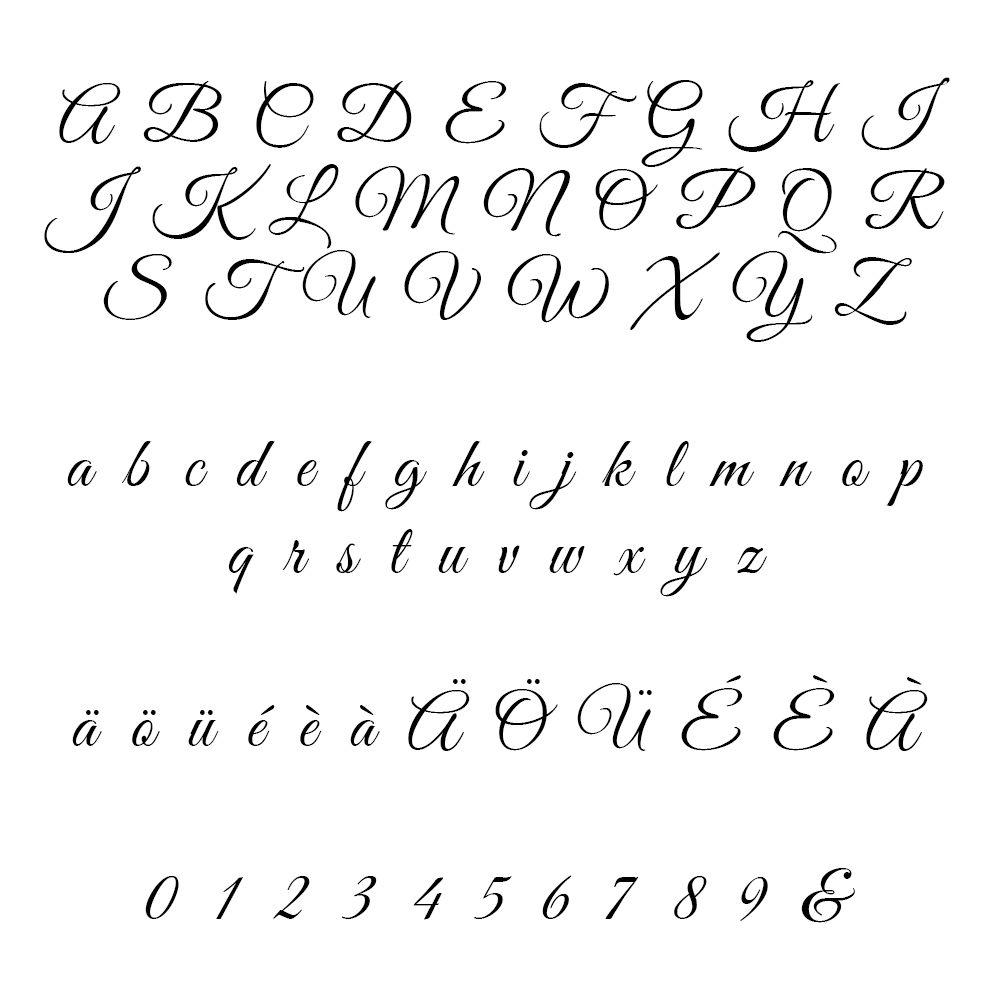 A B C D E F G H I
J K L M N O P Q R
S T U V W X Y Z
a b c d e f g h i j k l m n o p
q r s t u v w x y z
ä ö ü é è à Ä Ö Ü É È À
0 1 2 3 4 5 6 7 8 9 &